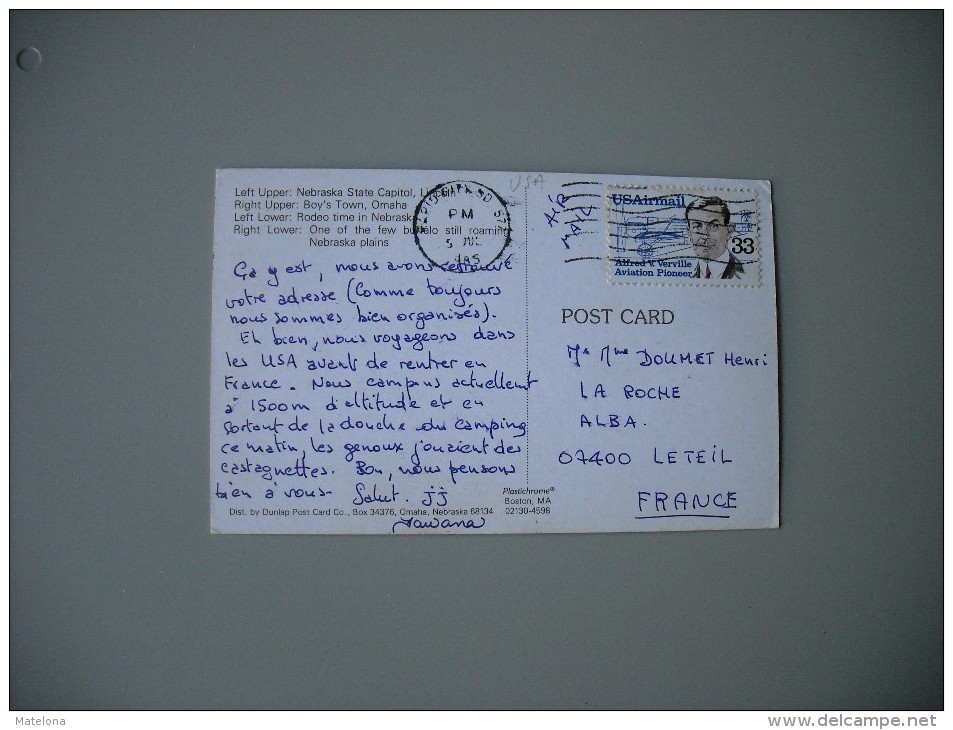 Left Upper: Nebraska State Capitol,
Right Upper: Boy's Town, Omaha
Left Lower: Rodeo time in Nebraska
Right Lower: One of the few buffalo still roaming
Nebraska plains
RAPID CITY SD 577
PM
5 JUL
1985
USA
AIR
MAIL
USAirmail
33
Alfred V. Verville
Aviation Pioneer
Ça y est, nous avons retrouvé
votre adresse (Comme toujours
nous sommes bien organisés).
Eh bien, nous voyageons dans
les USA avant de rentrer en
France. Nous campons actuellement
à 1500m d'altitude et en
sortant de la douche du camping
ce matin, les genoux jouaient des
castagnettes. Bon, nous pensons
bien à vous - Salut. JJ
Dist. by Dunlap Post Card Co., Box 34376, Omaha, Nebraska 68134
Plastichrome®
Boston, MA
02130-4598
POST CARD
Mr Mme DOUMET Henri
LA ROCHE
ALBA.
07400 LETEIL
FRANCE
Matelona
www.delcampe.net